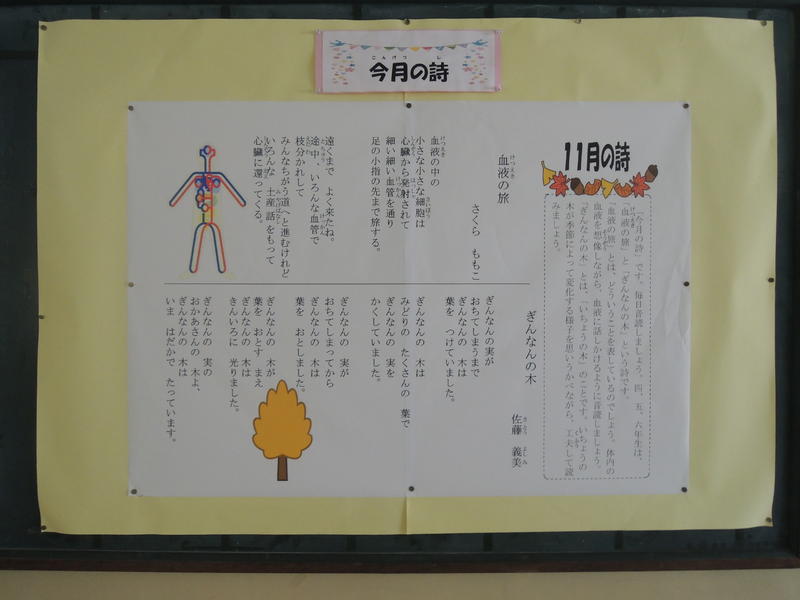 今月の詩
11月の詩
「今月の詩」です。毎日音読しましょう。四、五、六年生は、
「血液の旅」と「ぎんなんの木」という詩です。
「血液の旅」とは、どういうことを表しているのでしょう。体内の
血液を想像しながら、血液に話しかけるように音読しましょう。
「ぎんなんの木」とは、「いちょうの木」のことです。いちょうの
木が季節によって変化する様子を思いうかべながら、工夫して読
みましょう。
血液の旅
さくら ももこ
血液の中の
小さな小さな細胞は
心臓から発射されて
細い細い血管を通り
足の小指の先まで旅する。
遠くまで よく来たね。
途中、いろんな血管で
枝分かれして
みんなちがう道へと進むけれど
いろんな 土産話をもって
心臓に還ってくる。
ぎんなんの木
佐藤 義美
ぎんなんの実が
おちてしまうまで
ぎんなんの 木は
葉を つけていました。
ぎんなんの 木は
みどりの たくさんの 葉で
ぎんなんの 実を
かくしていました。
ぎんなんの 実が
おちてしまってから
ぎんなんの 木は
葉を おとしました。
ぎんなんの 木が
葉を おとす まえ
ぎんなんの 木は
きんいろに 光りました。
ぎんなんの 実の
おかあさんの 木よ、
ぎんなんの 木は
いま はだかで たっています。